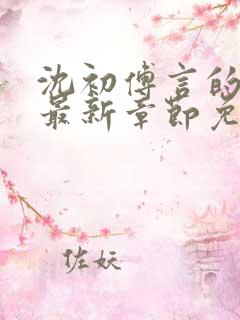 沈初傅言的
最新章節免
佐妖